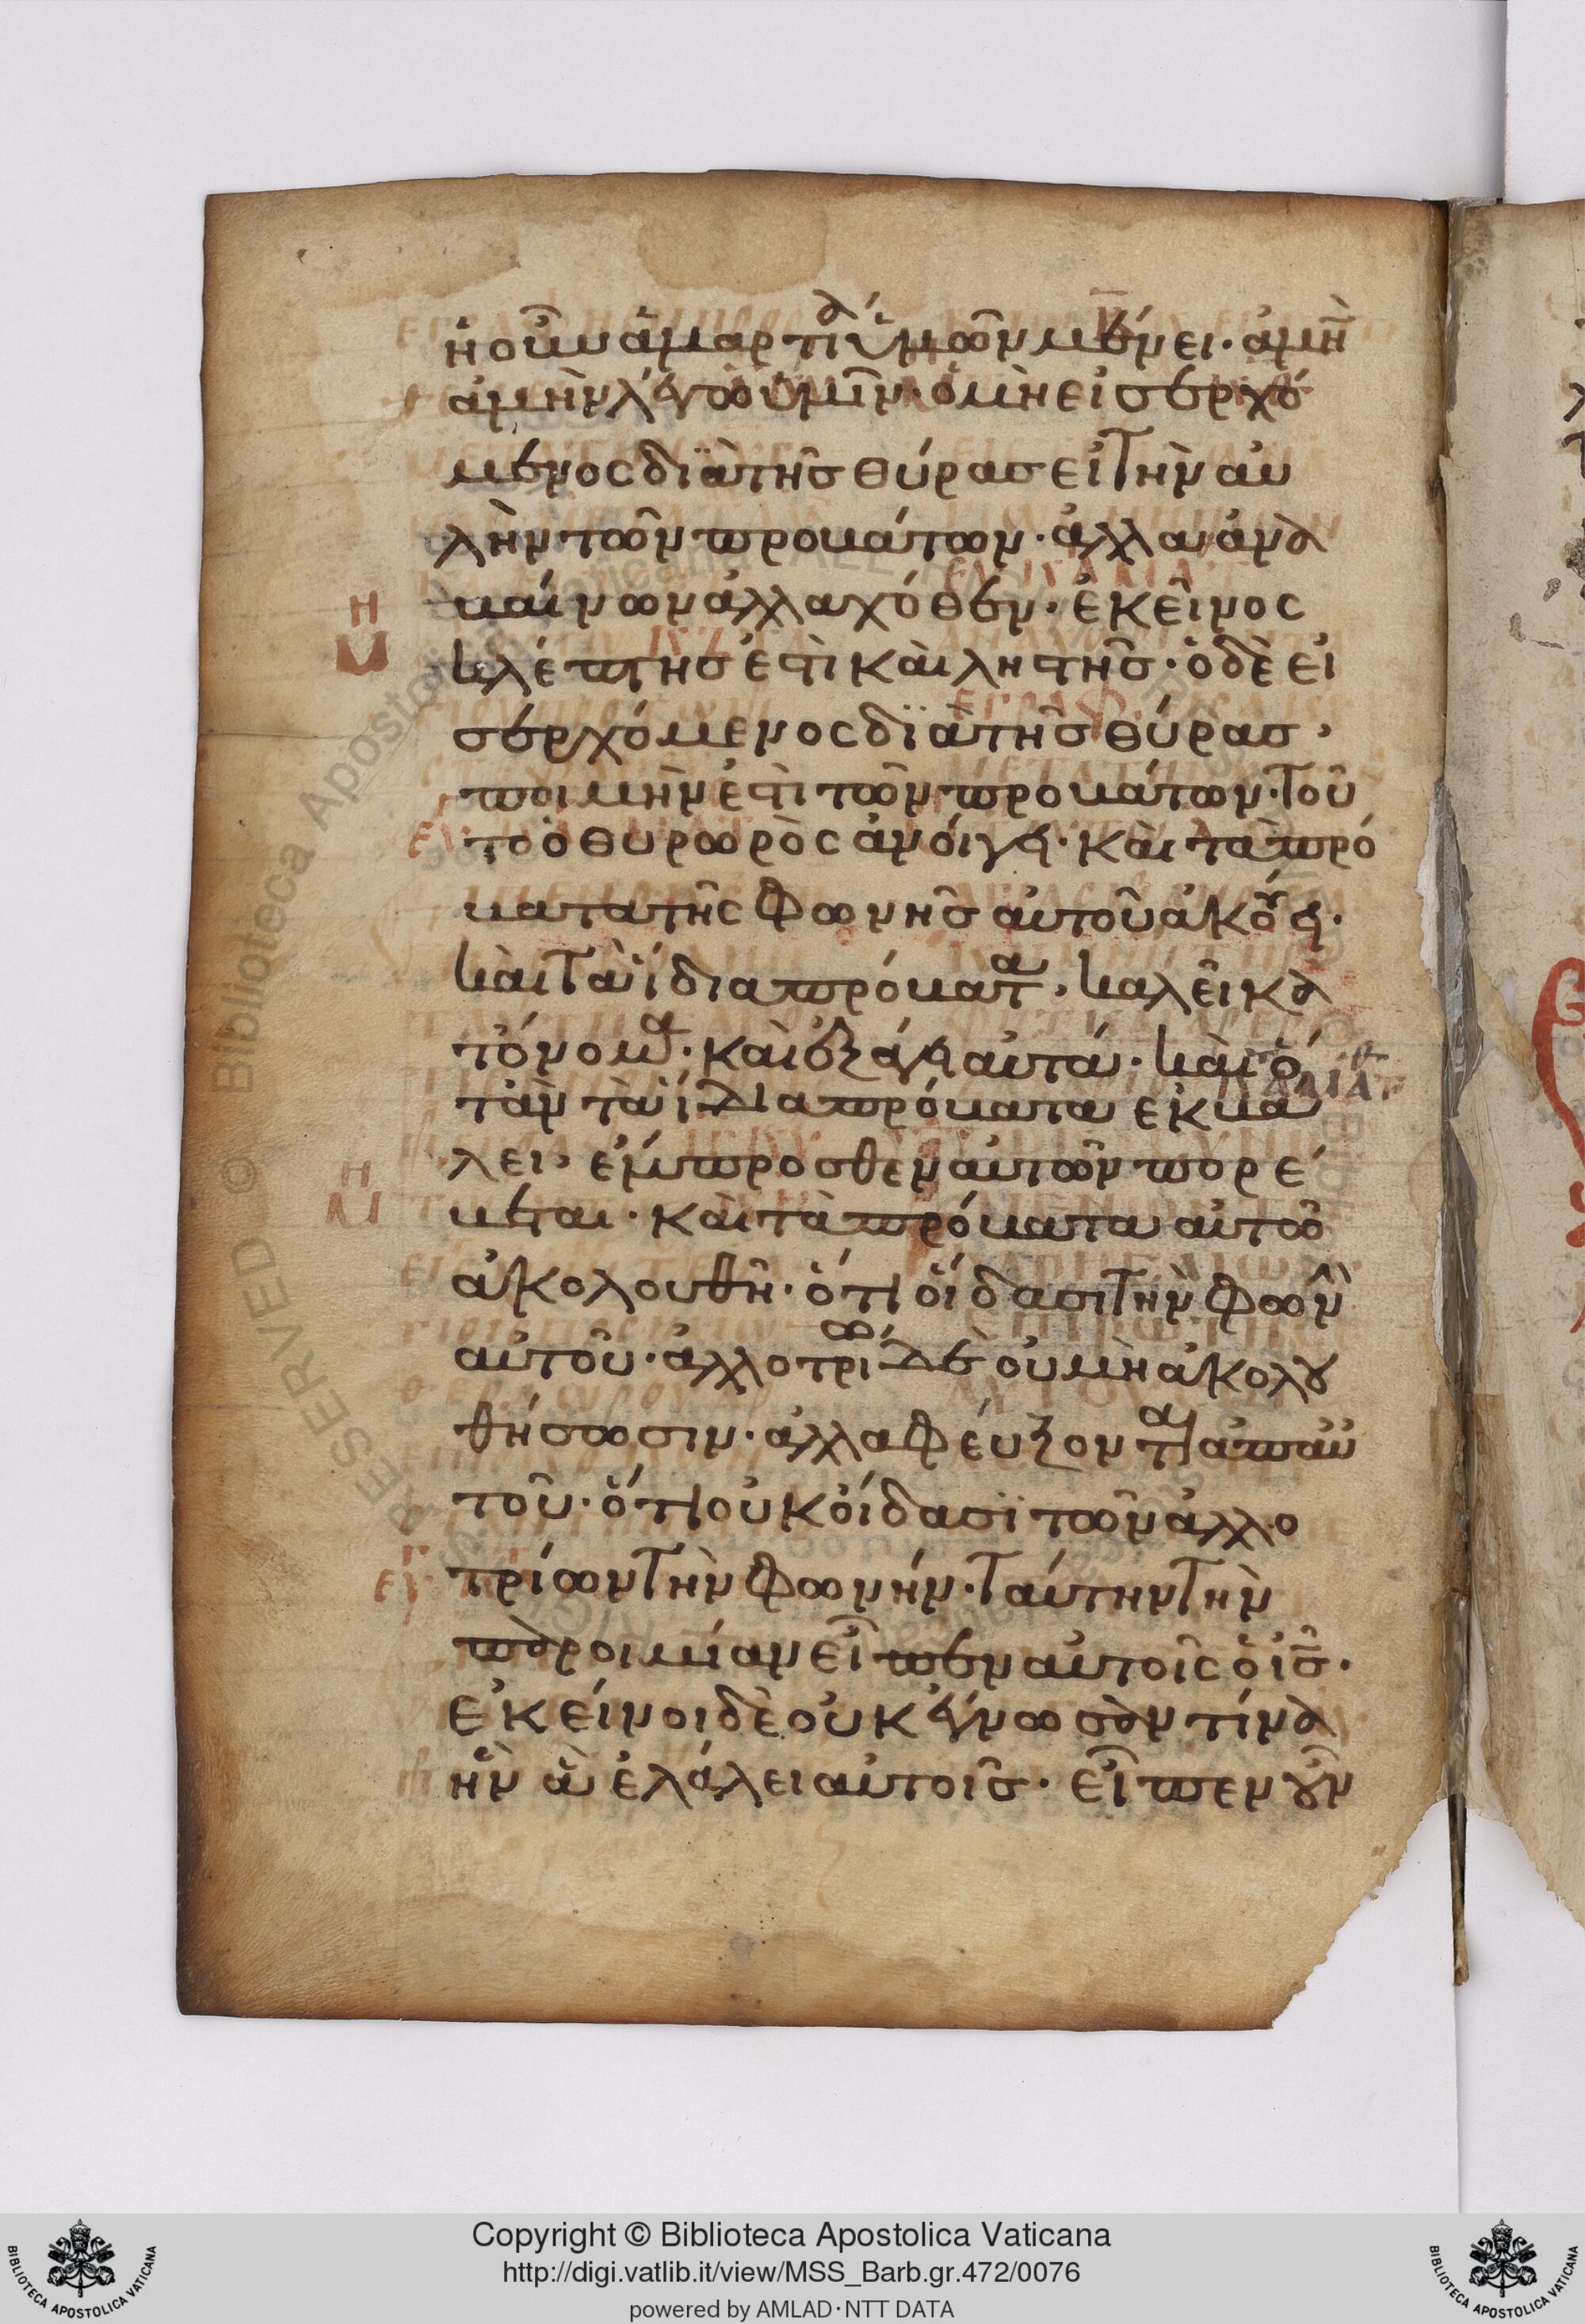 ἡ οὖν ἁμαρτία ὑμῶν μένει· ἀμὴν
ἀμὴν λέγω ὑμῖν· ὁ μὴ εἰσερχό
μενος διὰ τῆς θύρας εἰ τὴν αυ
λὴν τῶν προβάτων· ἀλλα ἀνα
βαίνων ἀλλαχόθεν· ἐκεῖνος
κλέπτης ἐστὶ καὶ ληστῆς· ὁ δὲ εἰ
σερχόμενος διὰ τῆς θύρας·
ποιμὴν ἐστὶ τῶν προβάτων· τοῦ
το ὁ θυρωρὸς ἀνοίγει· καὶ τὰ πρό
βατα τῆς φωνης αὐτοῦ ἀκούει·
καὶ τὰ ἴδια πρόβατα· καλεῖ κα
τ' ὄνομα· καὶ ἐξάγει αὐτά· καὶ ὅ
τὰν τὰ ἴδια πρόβατα ἐκβά
λει· ἔμπροσθεν αὐτῶν πορέ
βεται· καὶ τὰ πρόβατα αὐτῶ
ἀκολουθῆ· ὅτι οἴδασι τὴν φωνὴν
αὐτοῦ· ἀλλοτρίω δὲ οὐ μὴ ἀκολου
θήσωσιν· ἀλλα φεύξονται ἀπ αὐ
τοῦ· ὅτι οὐκ οἴδασϊ τῶν ἀλλο
τρίων τὴν φωνήν· ταύτην τὴν
παροιμίαν εἶπεν αὐτοῖς ὁ ις·
ἐκείνοι δὲ οὐκ ἔγνωσαν τίνα
ἦν ἃ ἐλάλει αὐτοῖς· εἶπεν οὖν
Copyright © Biblioteca Apostolica Vaticana
http://digi.vatlib.it/view/MSS_Barb.gr.472/0076
powered by AMLAD·NTT DATA
BIBLIOTECA APOSTOLICA VATICANA
BIBLIOTECA APOSTOLICA VATICANA